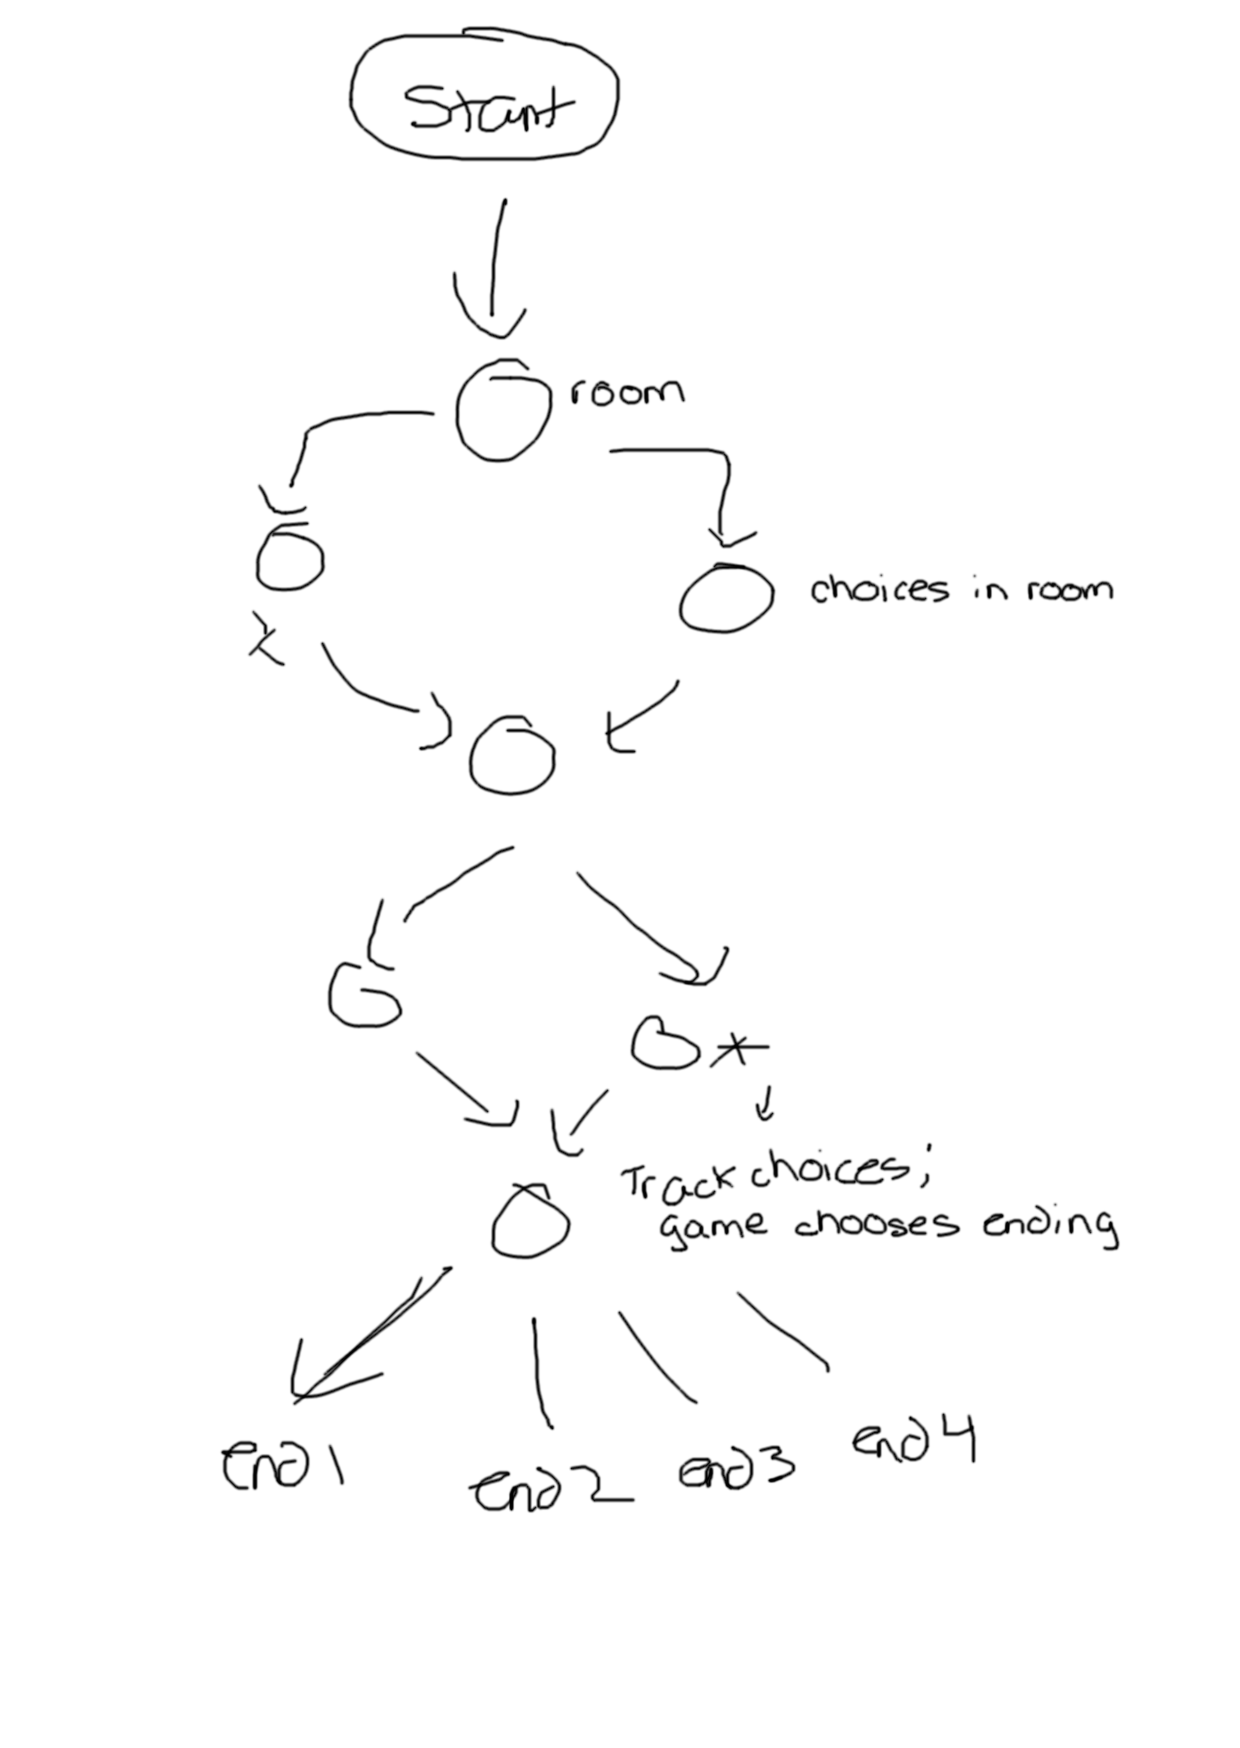 Start
room
choices in room
x
*
Track choices;
game chooses ending
end 1
end 2
end 3
end 4